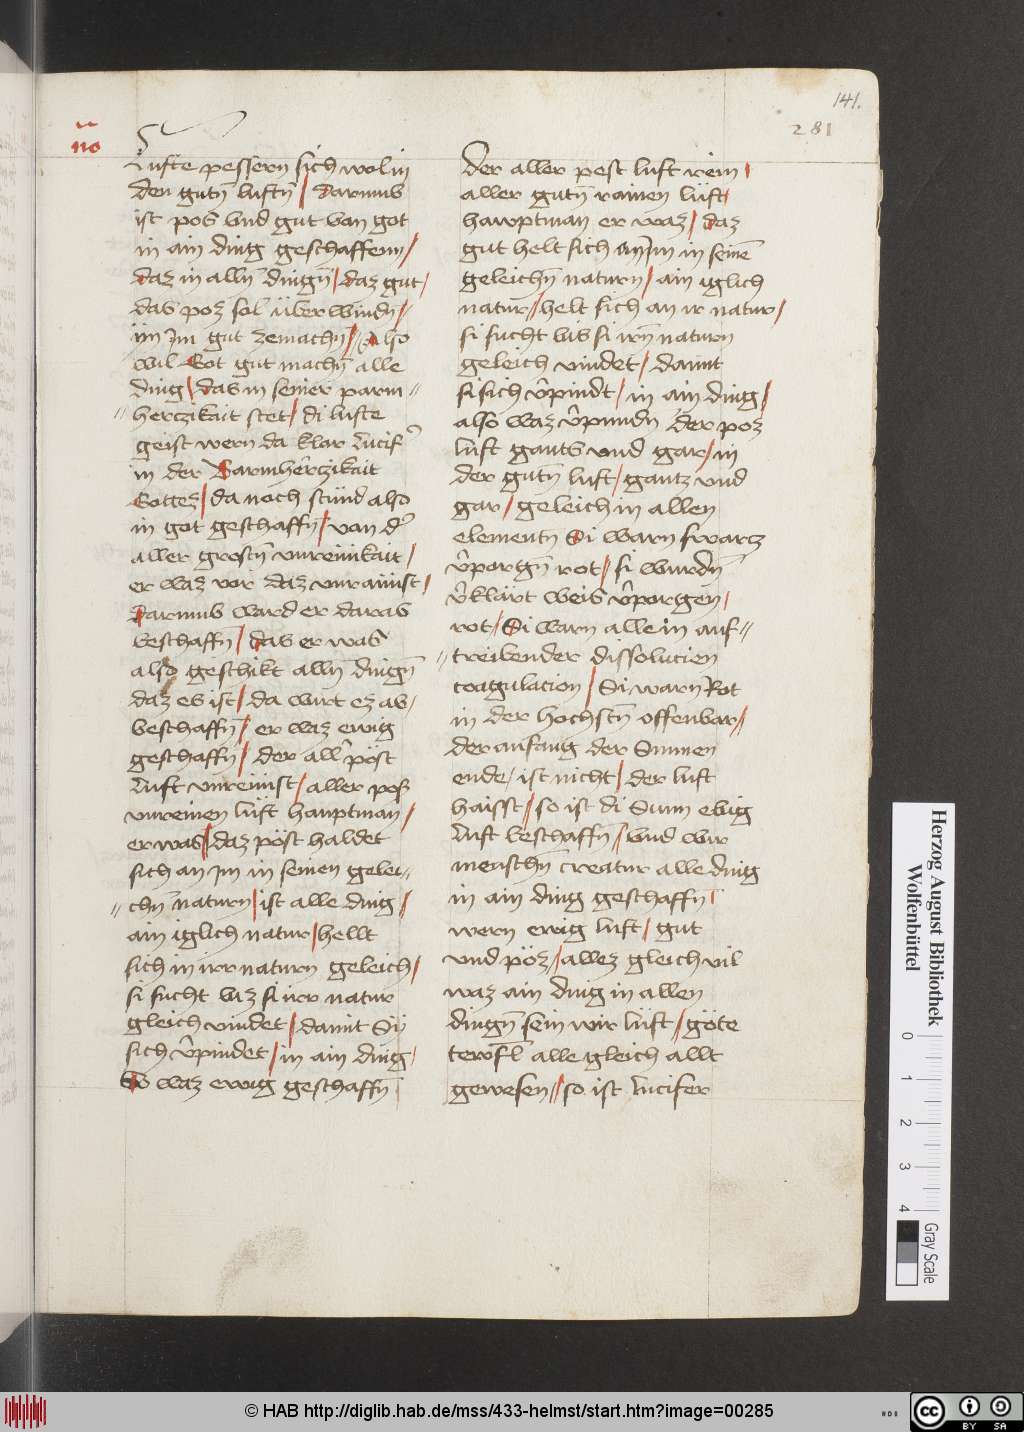 141.
281
n̄o
Lufte pessern sich wol in
den gutn̄ luftn̄ / darumb
ist pos vnd gut van got
in ain ding geschaffenn /
daz in alln̄ dingn̄ / daz gut /
das poz sol über windn̄ //
im gut zemachn̄ // Also
wil Got gut machn̄ alle
ding / das in seiner parm=
herczikait stet / di lufte
geist wern da klar Lucifʾ
in der Barmherczikait
Gottez / da noch stünd also
in got geschaffn̄ / van dʾ
aller grostn̄ vnreinikait /
er waz vor daz vnrainist /
Darumb ward er daras
beschaffn̄ / das er was
also geschikt alln̄ dingn̄
daz es ist / da wirt ez ab /
beschaffn̄ / er waz ewig
geschaffn̄ / der allʾ pöst
Luft vnreinist / aller poß
vnreinen lüft hauptman /
er was / daz pöst haldet
sich an im in seinen gelei=
chn̄ naturn / ist alle ding /
ain iglich natur / hellt
sich in irr naturn geleich /
si sucht biz si irr natur
gleich vindet / damit Sii
sich vʾpindet / in ain ding /
So waz ewig geschaffn̄
der aller pest luft rein /
aller gutn̄ rainen lüft /
hawptman er waz / daz
gut helt sich an im in seinē
geleichn̄ naturn / ain iglich
natur / helt sich an ir natur /
si sucht bis si irn̄ naturn
geleich vindet / damit
si sich vʾpindt / in ain ding /
also waz vʾpundn̄ der poz
luft gants vnd gar / in
der gutn̄ luft / gantz vnd
gar / geleich in allen
elementn̄ Si warn swartz
vʾporgn̄ rot / si wurdn̄
vʾklärt weis vʾporgen /
rot / Si warn alle in auf=
treibender dissolucien
coagulacion / Si warn Rot
in der hochstn̄ offenbar /
der anfang der Sunnen
ende / ist nicht / der luft
haisst / so ist di Sunn ebig
Luft beschaffn̄ / vnd wir
menschn̄ creatur alle ding
in ain ding geschaffn̄ /
wern ewig luft / gut
vnd pöz / allez gleich vil
waz ain ding in allen
dingn̄ sein wir lüft / göte
tewfl alle gleich allt
gewesen // so ist Lucifer
Herzog August Bibliothek
Wolfenbüttel
0 1 2 3 4
Gray Scale
© HAB http://diglib.hab.de/mss/433-helmst/start.htm?image=00285
HAB
cc BY SA